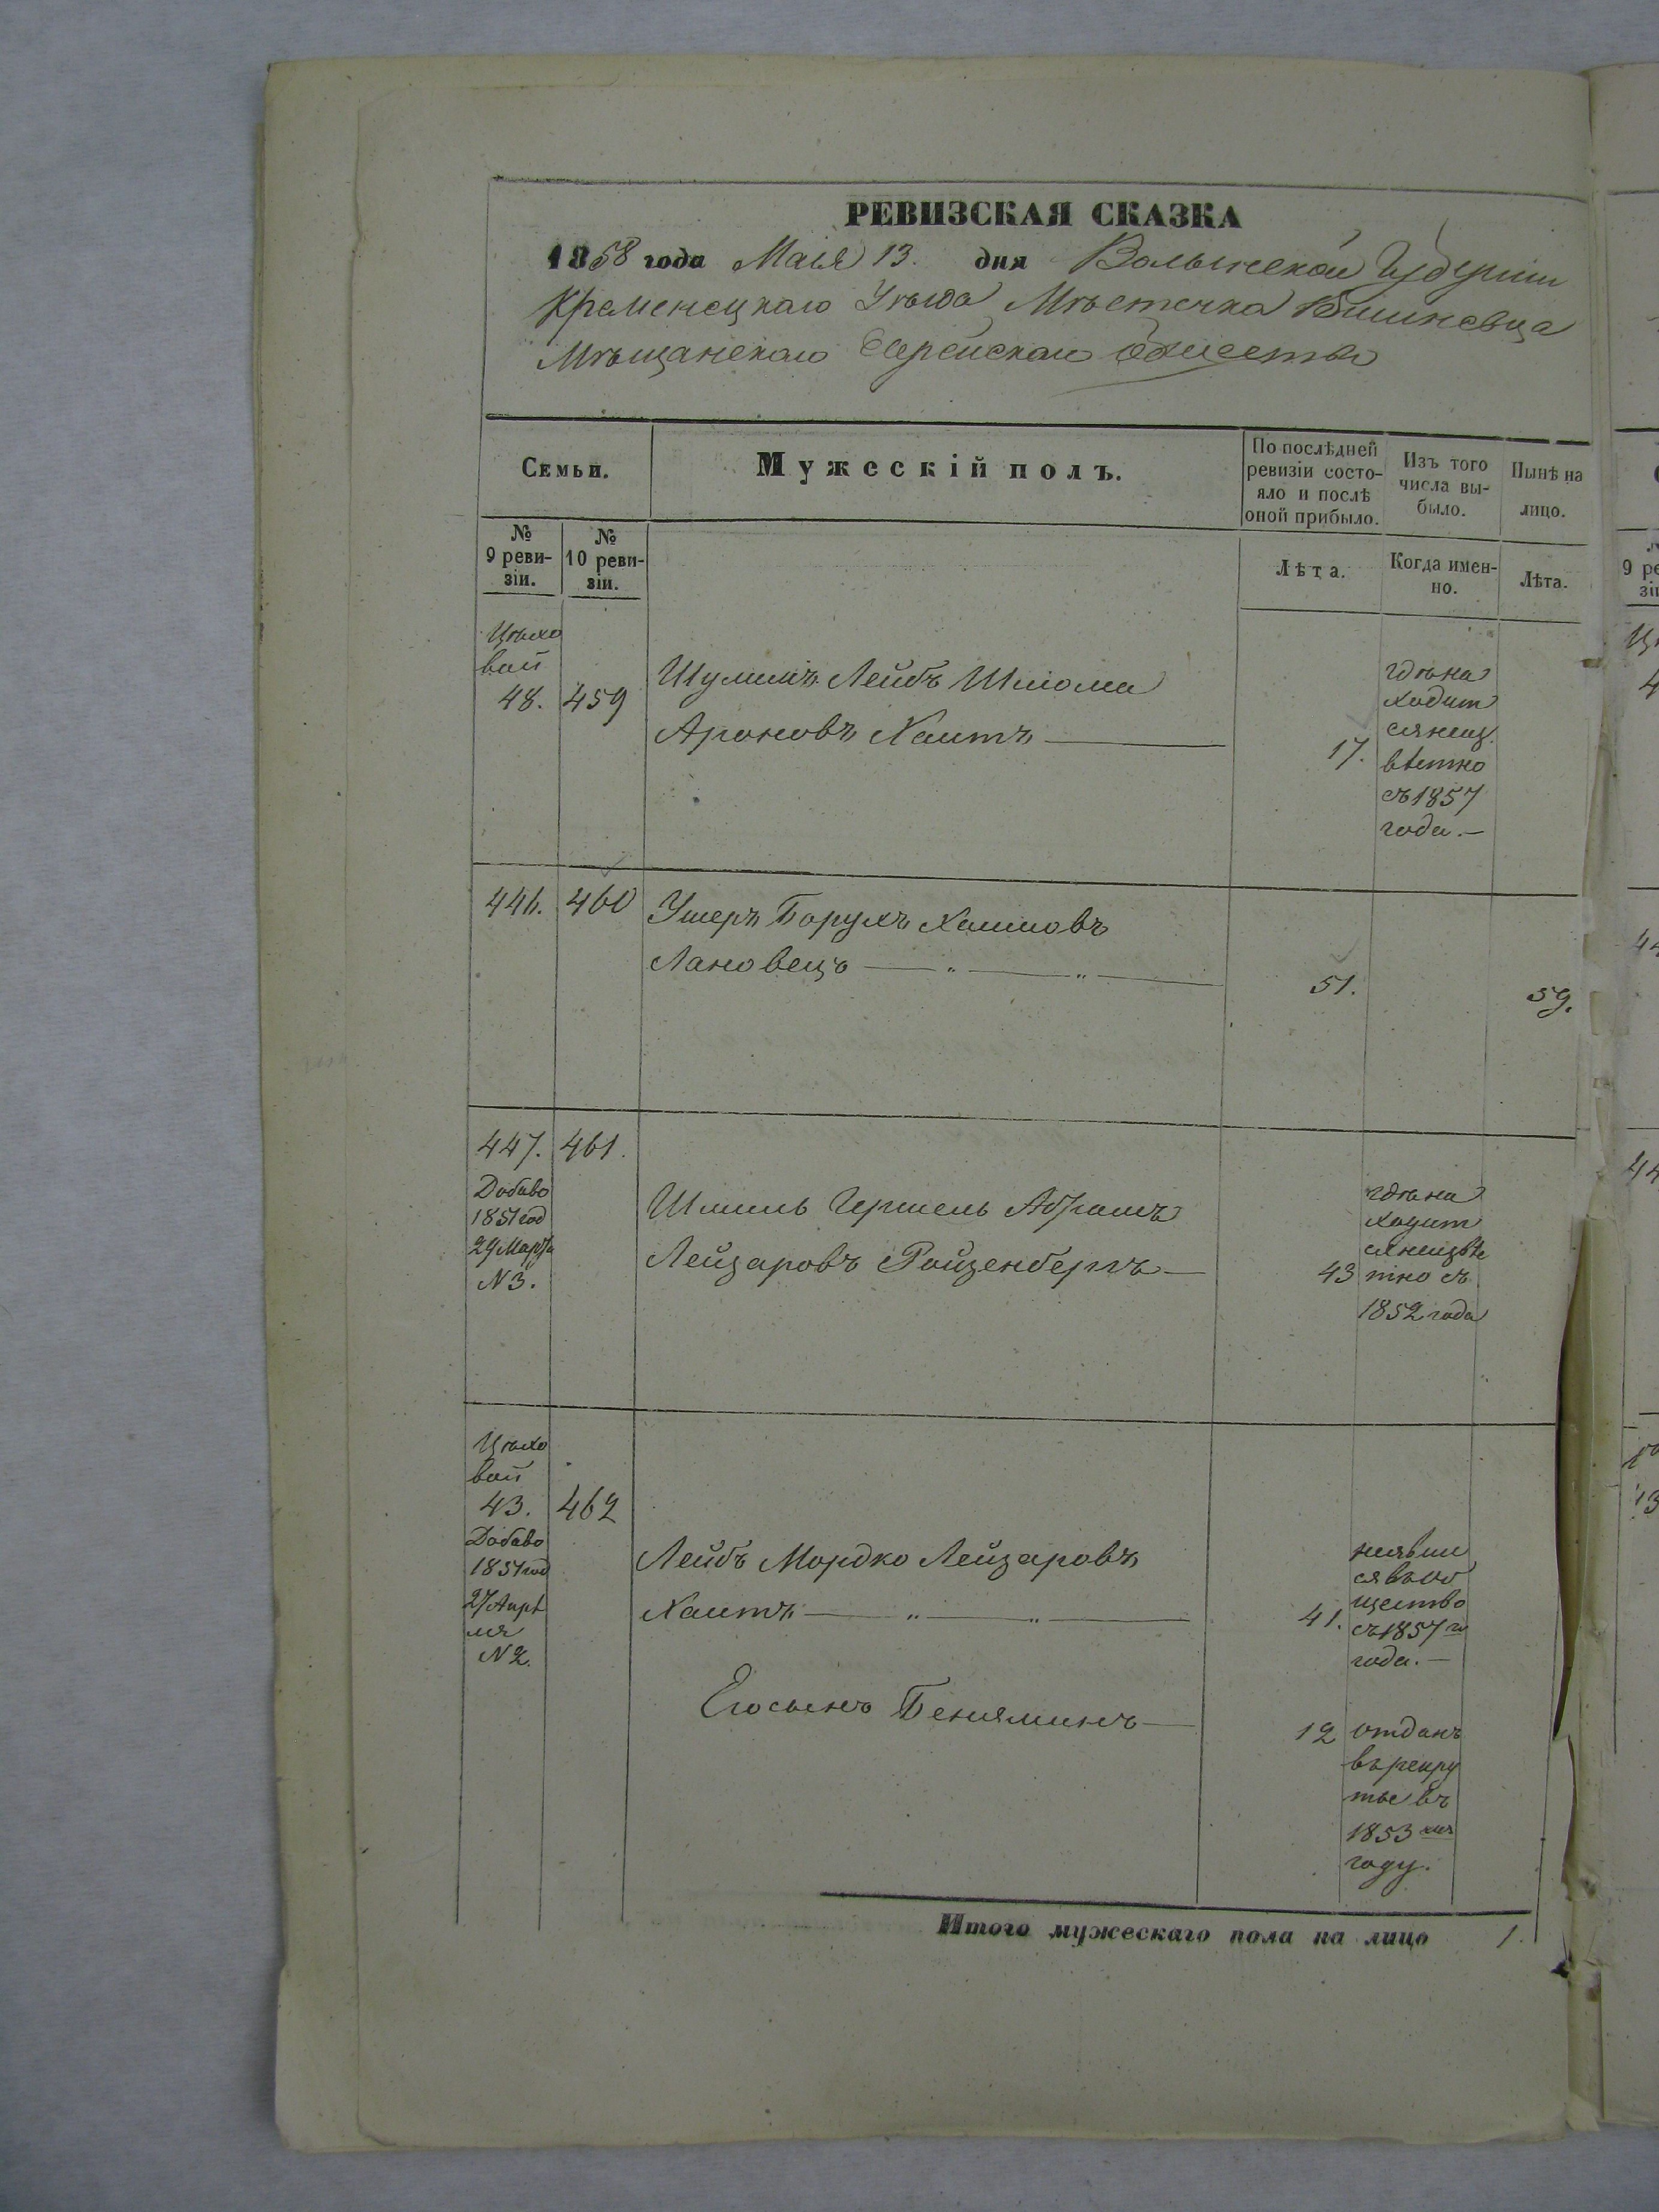 РЕВИЗСКАЯ СКАЗКА
1858 года Маія 13. дня Волынской Губерніи
Кременецкаго Уѣзда Мѣстечка Вишневца
Мѣщанскаго Еврейскаго Общества
Семьи.
Мужескій полъ.
По послѣдней ревизіи состо-
яло и послѣ
оной прибыло.
Изъ того
числа вы-
было.
Нынѣ на
лицо.
№
9 реви-
зіи.
№
10 реви-
зіи.
Лѣта.
Когда имен-
но.
Лѣта.
Цѣхо
вой
48. 459
Шулимъ Лейбъ Шліома
Ароновъ Хаитъ
17.
гдѣ на
ходит
ся неиз
вѣстно
съ 1857
года.—
446. 460
Ушеръ Борухъ Хаимовъ
Лановецъ — „ — „ —
51.
59.
447. 461.
Добаво
1851 год
29 Марта
N 3.
Шмиль Гершель Абрамъ
Лейзаровъ Ройзенбергъ —
43
гдѣ на
ходит
ся неизвѣ
тно съ
1852 года
Цѣхо
вой
43. 462
Добаво
1851 год
27 Апрѣ
ля
N 2.
Лейбъ Мордко Лейзаровъ
Хаитъ — „ — „ —
41.
неявил
ся въ об
щество
съ 1857 го
года.—
Его сынъ Беняминъ —
12
отданъ
въ рекру
ты въ
1853 мъ
году.
Итого мужескаго пола на лицо 1.